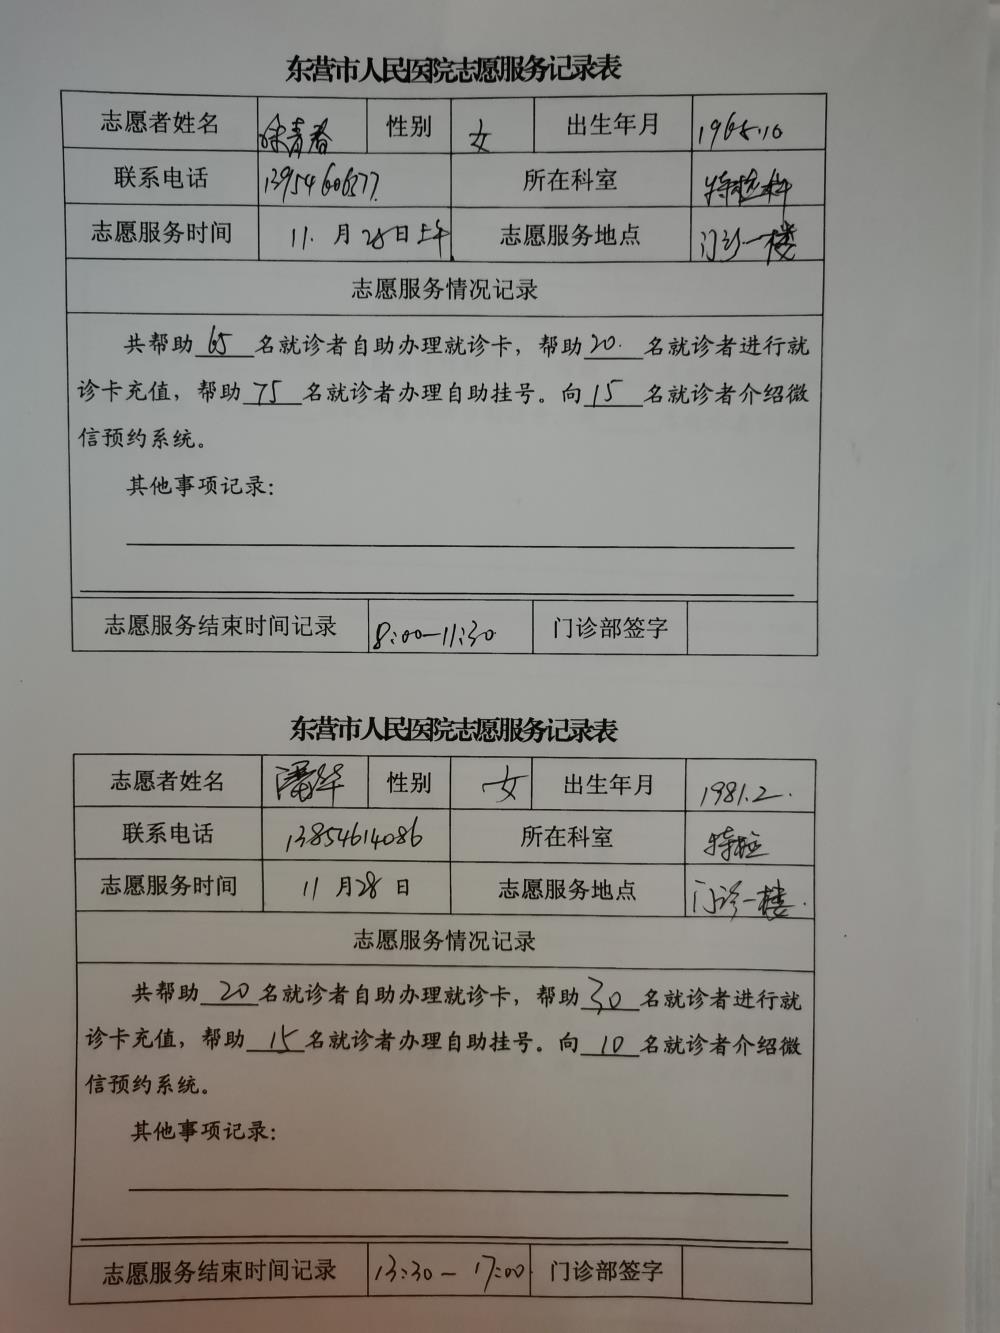 东营市人民医院志愿服务记录表
志愿者姓名 徐青春 性别 女 出生年月 1965.10
联系电话 所在科室 特检科
志愿服务时间 11.月28日上午 志愿服务地点 门诊一楼
志愿服务情况记录
共帮助65名就诊者自助办理就诊卡，帮助20.名就诊者进行就
诊卡充值，帮助75名就诊者办理自助挂号。向15名就诊者介绍微
信预约系统。
其他事项记录：
志愿服务结束时间记录 8:00-11:30 门诊部签字
东营市人民医院志愿服务记录表
志愿者姓名 潘华 性别 女 出生年月 1981.2.
联系电话 13854614086 所在科室 特检
志愿服务时间 11月28日 志愿服务地点 门诊一楼.
志愿服务情况记录
共帮助20名就诊者自助办理就诊卡，帮助30名就诊者进行就
诊卡充值，帮助15名就诊者办理自助挂号。向10名就诊者介绍微
信预约系统。
其他事项记录：
志愿服务结束时间记录 13:30-17:00 门诊部签字